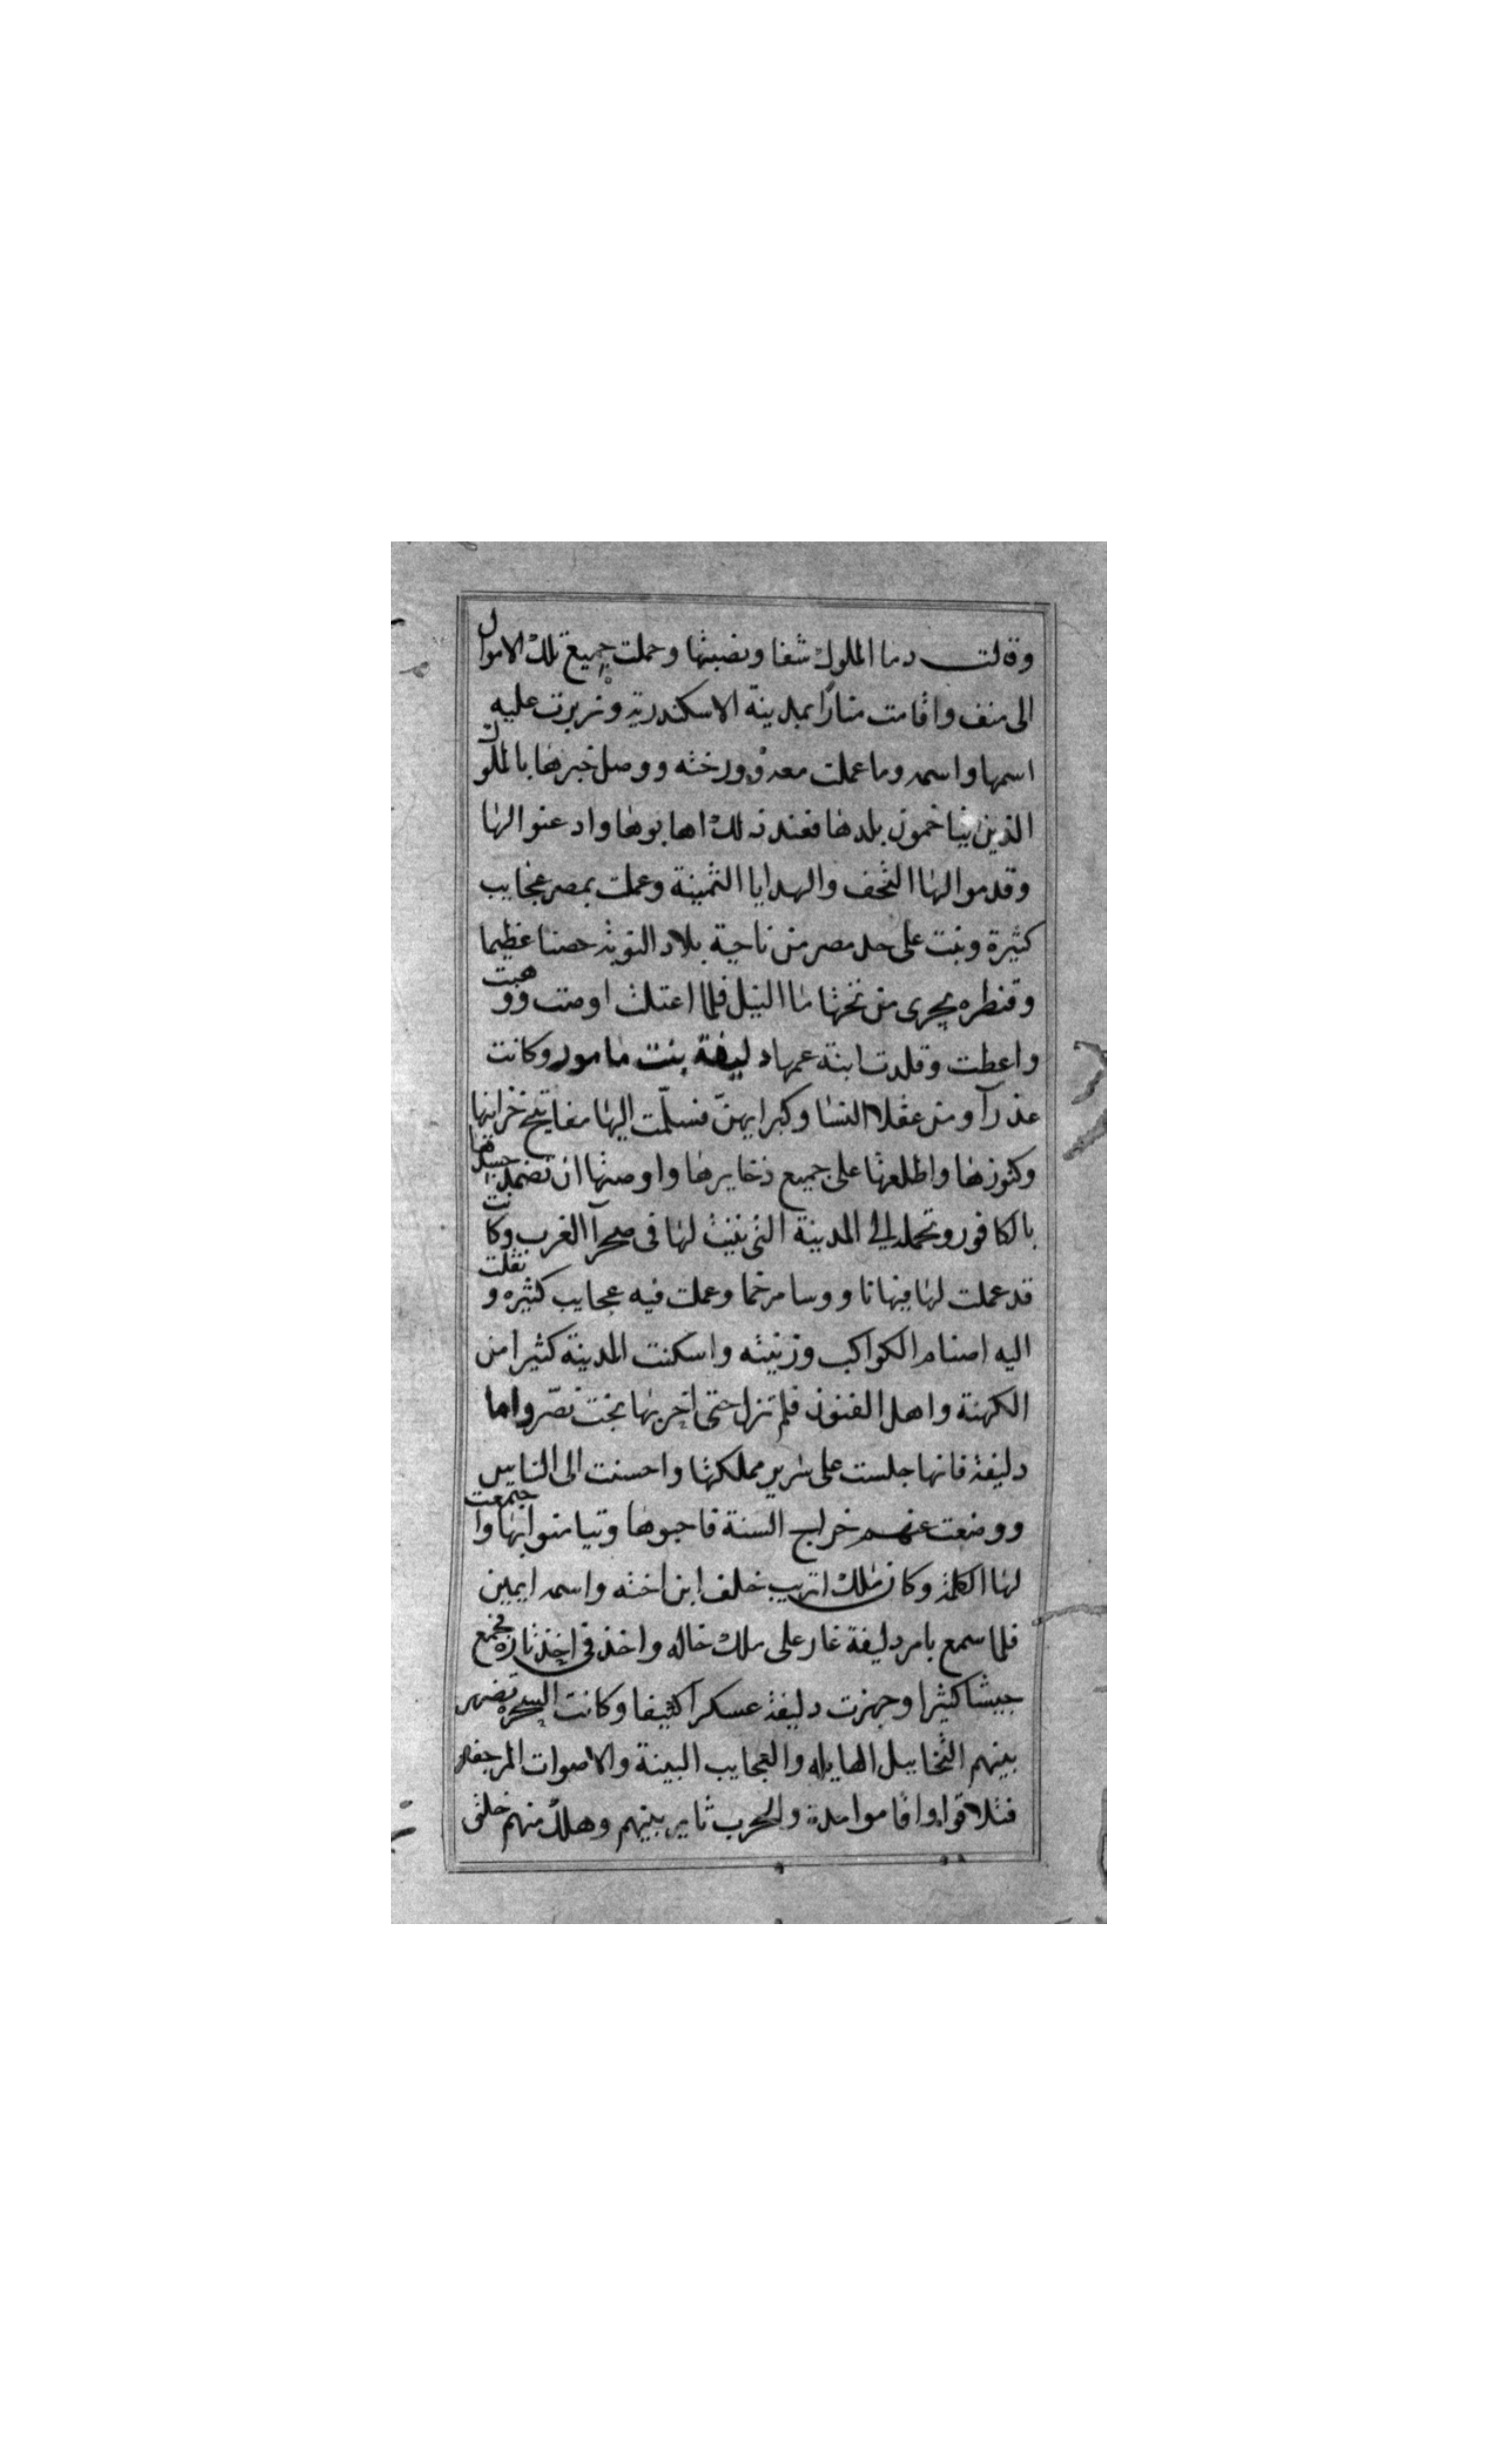 وقالت دما الملوك شفا ونصبتها وحملت جميع تلك الاموال
الى منف واقامت منارا بمدينة الاسكندرية وزبرت عليه
اسمها واسمه وما عملت معه وورخته ووصل خبرها بالملوك
الذين يتاخمون بلدها فعند ذلك اهابوها وادعنوا لها
وقدموا لها التحف والهدايا الثمينة وعملت بمصر عجايب
كثيرة وبنت على حد مصر من ناحية بلاد النوبة حصنا عظيما
وقنطره يجرى من تحتها ما النيل فلما اعتلت اوصت ووهبت
واعطت وقلدت ابنة عمها دليفة بنت مامور وكانت
عذرآ ومن عقلا النسا وكبرايهنّ فسلّمت اليها مفاتيح خزاينها
وكنوزها واطلعتها على جميع ذخايرها واوصتها ان تضمد جسدها
بالكافور وتحمله الى المدينة التى بنيت لها فى صحرآ الغرب وكانت
قد عملت لها فيها ناووسا مرخما وعملت فيه عجايب كثيره ونقلت
اليه اصنام الكواكب وزينته واسكنت المدينة كثيرا من
الكهنة واهل الفنون فلم تزل حتى اخربها بخت نصّر واما
دليفة فانها جلست على سرير مملكتها واحسنت الى الناس
ووضعت عنهم خراج السنة فاحبوها وتيامنوا بها واجتمعت
لها الكلمة وكان ملك اتريب خلف ابن اخته واسمه ايمين
فلما سمع بامر دليفة غار على ملك خاله واخذ فى اخذ ثاره فجمع
جيشا كثيرا وجهزت دليفة عسكرا كثيفا وكانت السحرة تضهر
بينهم التخاييل الهايله والعجايب البينة والاصوات المرجفه
فتلاقوا واقاموا مدة والحرب ثاير بينهم وهلك منهم خلق